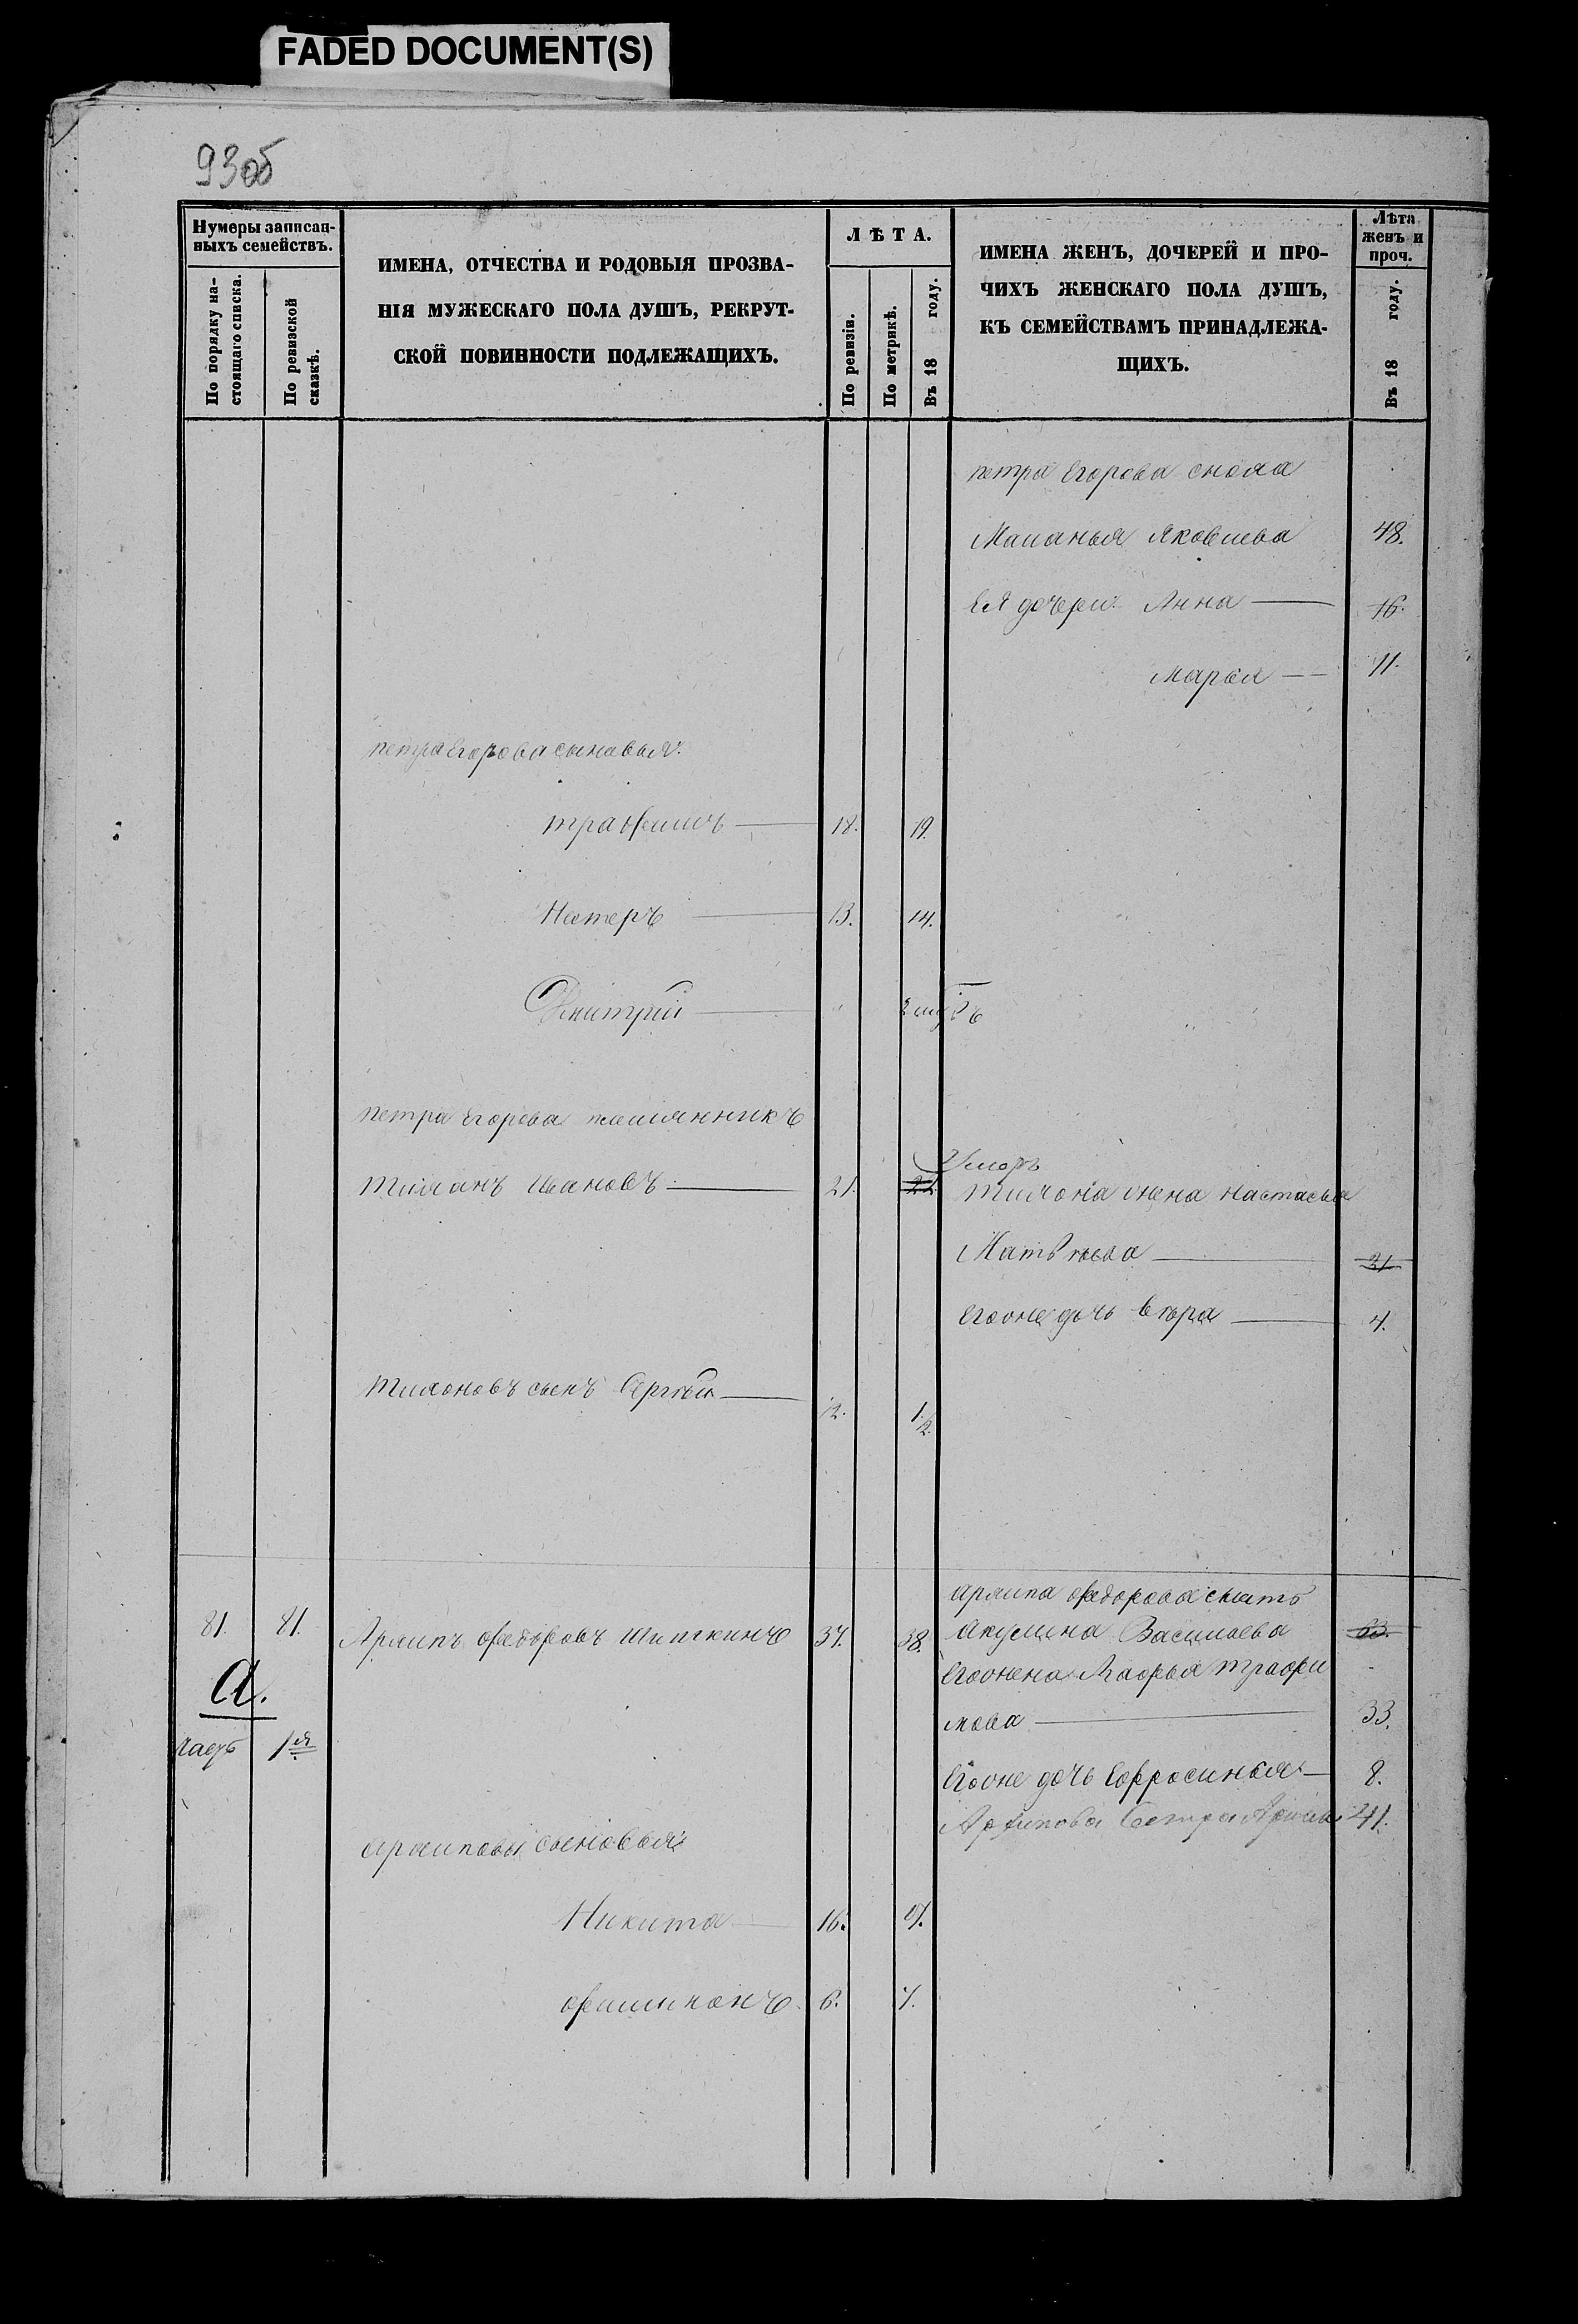 FADED DOCUMENT(S)
93об
Нумеры записан-
ныхъ семействъ.
По порядку на-
стоящаго списка.
По ревизской
сказкѣ.
ИМЕНА, ОТЧЕСТВА И РОДОВЫЯ ПРОЗВА-
НІЯ МУЖЕСКАГО ПОЛА ДУШЪ, РЕКРУТ-
СКОЙ ПОВИННОСТИ ПОДЛЕЖАЩИХЪ.
ЛѢТА.
По ревизіи.
По метрикѣ.
Въ 18 году.
ИМЕНА ЖЕНЪ, ДОЧЕРЕЙ И ПРО-
ЧИХЪ ЖЕНСКАГО ПОЛА ДУШЪ,
КЪ СЕМЕЙСТВАМЪ ПРИНАДЛЕЖА-
ЩИХЪ.
Лѣта
женъ и
проч.
Въ 18 году.
петра Егорова сноха
Маланья Яковлева 48.
Ея дочери: Анна 16.
Марья 11.
петра Егорова сыновья:
трофимъ 18. 19.
Нестеръ 13. 14.
Дмитрій
петра Егорова племянникъ
Умеръ
тихонъ Ивановъ 21. 22
тихона жена настасья
Матвѣева 21
Егоже дочь вѣра 4.
тихоновъ сынъ Сергѣй 1/2
архипа федорова мать
81. 81. Архипъ федоровъ 37. 38. Акулина Васильева 63.
Егожена Марья трофи
мова 33.
А.
часть 1я
Егоже дочь Ефросинья 8.
Архипова Сестра 41.
архиповы сыновья:
Никита 16. 17.
филимонъ 6. 7.